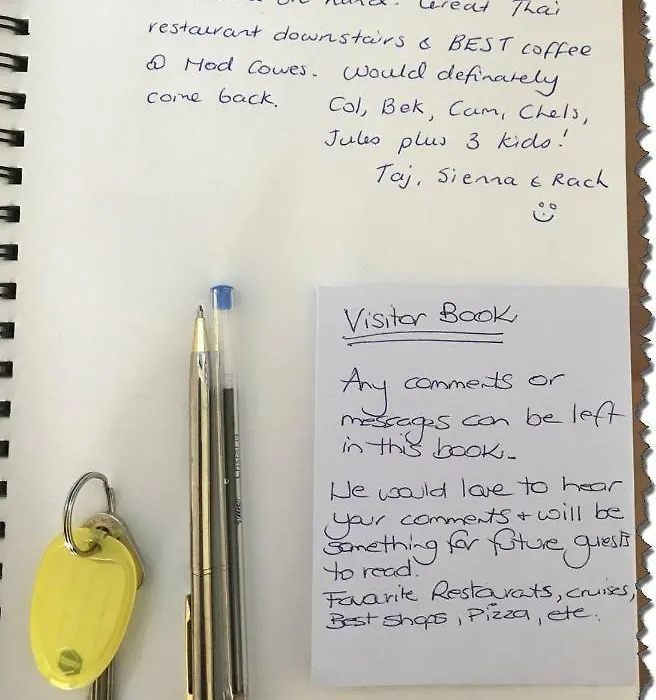 on hand. Great Thai
restaurant downstairs & BEST coffee
@ Mod Cowes. Would definately
come back. Col, Bek, Cam, Chels,
Jules plus 3 kids!
Taj, Sienna & Rach
Visitor Book
Any comments or
messages can be left
in this book.
We would love to hear
your comments + will be
something for future guests
to read.
Favarite Restaurats, cruises,
Best shops, Pizza, etc.